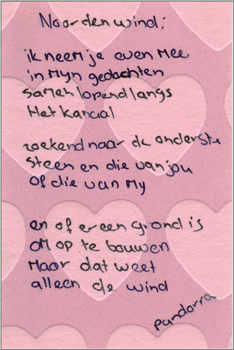 Noordenwind:
ik neem je even mee
in mijn gedachten
samen lopend langs
Het kanaal
zoekend naar de onderste
steen en die van jou
of die van My
en of er een grond is
om op te bouwen
Maar dat weet
alleen de wind
pandorra